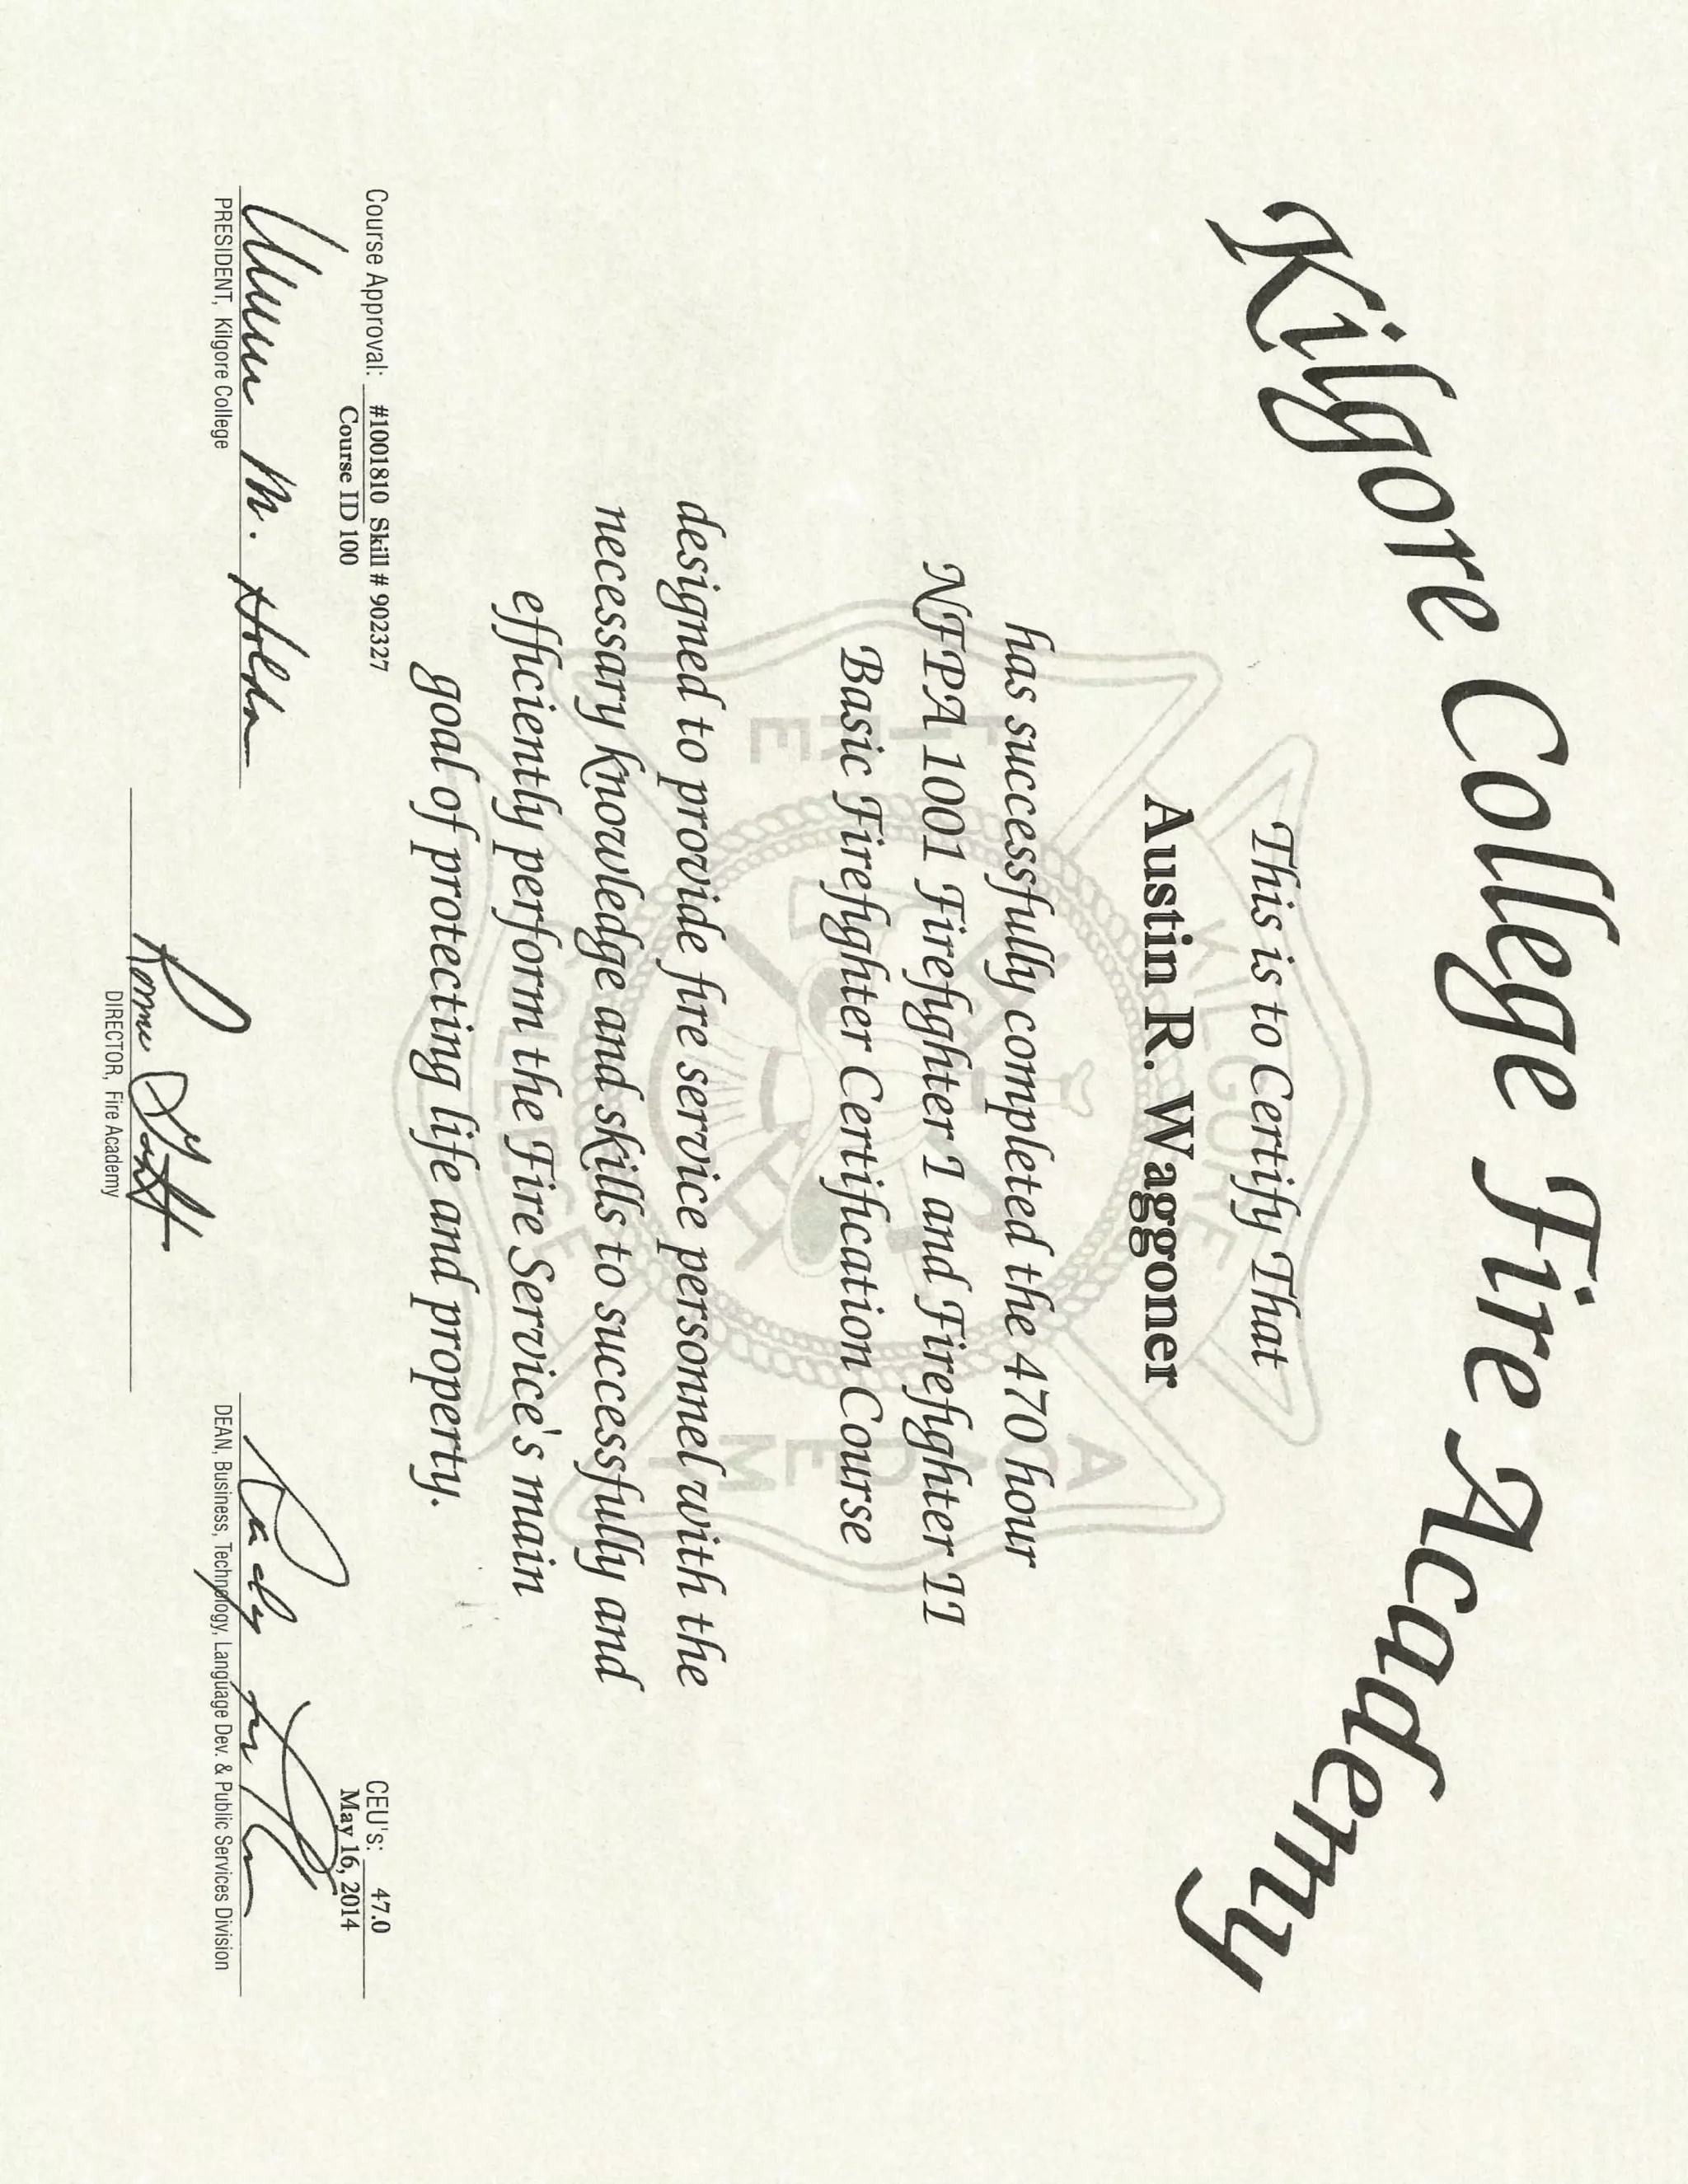 Kilgore College Fire Academy
This is to Certify That
Austin R. Waggoner
has successfully completed the 470 hour
NFPA 1001 Firefighter I and Firefighter II
Basic Firefighter Certification Course
designed to provide fire service personnel with the
necessary knowledge and skills to successfully and
efficiently perform the Fire Service's main
goal of protecting life and property.
Course Approval: #1001810 Skill # 902327
Course ID 100
CEU's: 47.0
May 16, 2014
PRESIDENT, Kilgore College
DIRECTOR, Fire Academy
DEAN, Business, Technology, Language Dev. & Public Services Division
KILGORE
FIRE
ACADEMY
COLLEGE